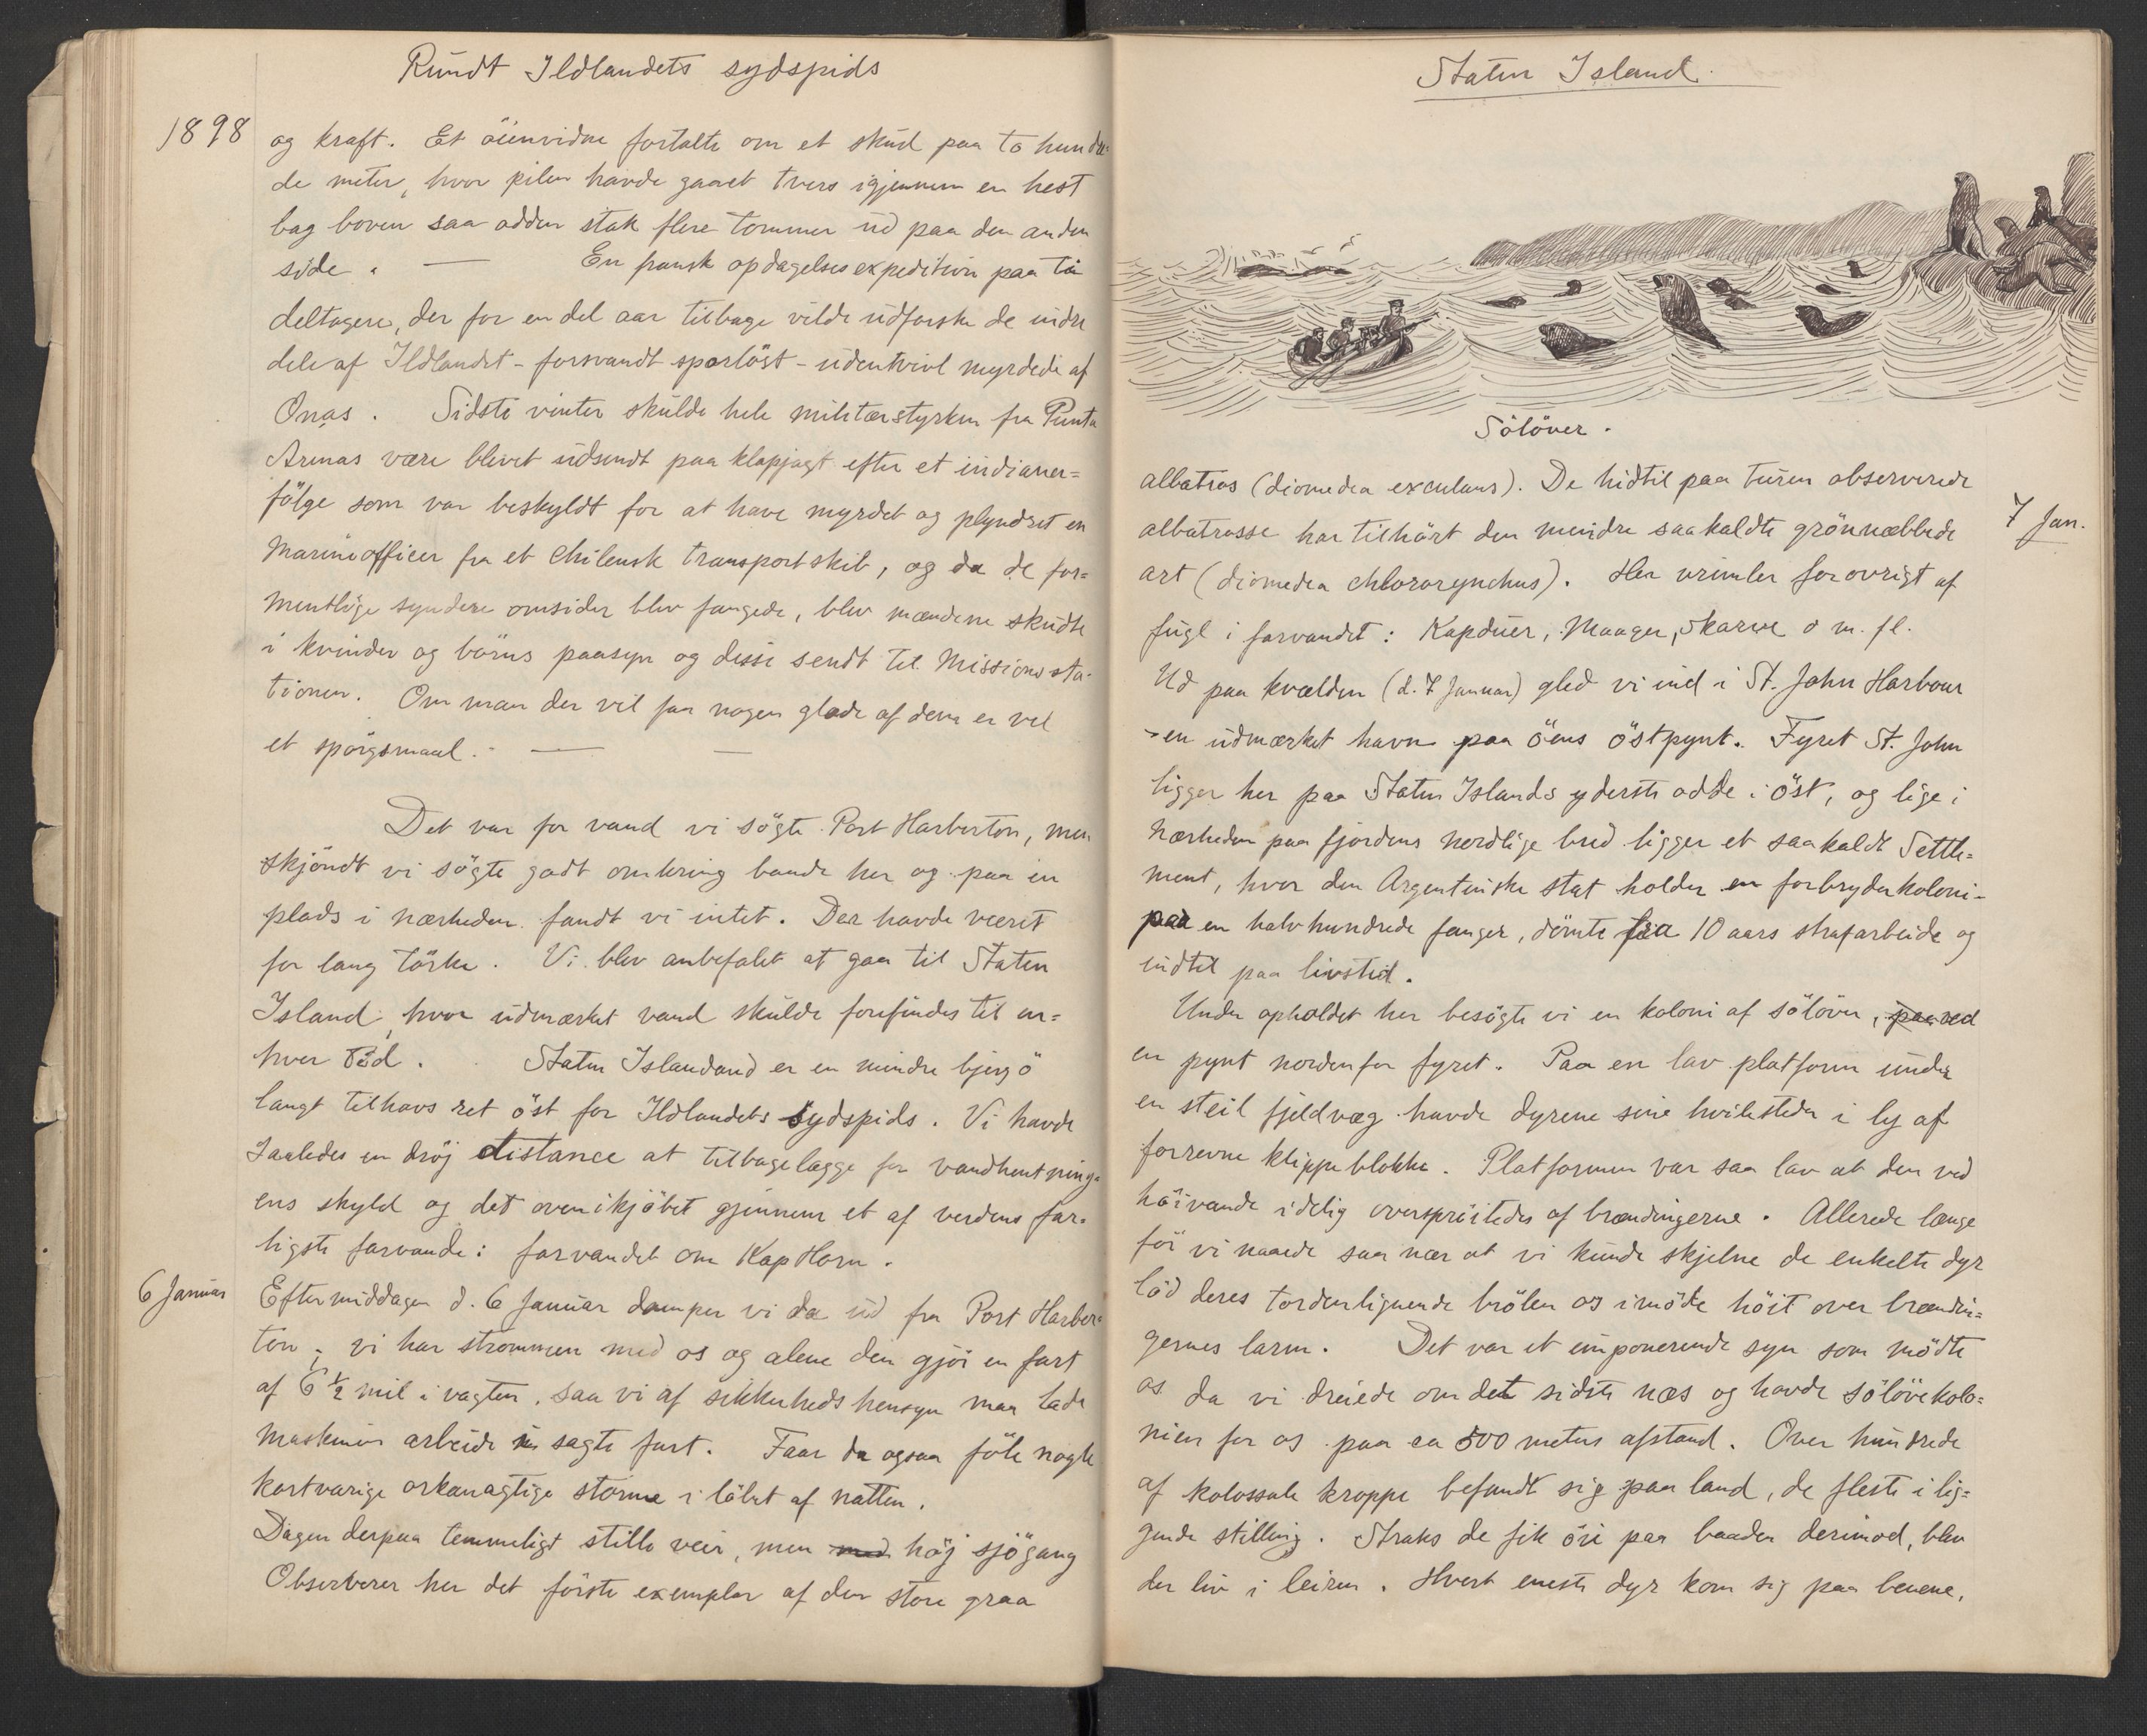 Rundt Ildlandets sydspids
1898
og kraft. Et öienvidne fortalte om et skud paa to hundre-
de meter, hvor pilen havde gaaet tvers igjennem en hest
bag boven saa odden stak flere tommer ud paa den anden
side. — En fransk opdagelsesexpedition paa ti
deltagere, der for en del aar tilbage vilde udforske de indre
dele af Ildlandet - forsvandt sporlöst - udentvivl myrdede af
Onas. Sidste vinter skulde hele militærstyrken fra Punta
Arenas være blevet udsendt paa klapjagt efter et indianer=
fölge som var beskyldt for at have myrdet og plyndret en
Marineofficer fra et chilensk transportskib, og da de for=
mentlige syndere omsider blev fangede, blev mændene skudte
i kvinder og börns paasyn og disse sendt til Missionssta-
tionen. Om man der vil faa nogen glæde af dem er vel
et spörgsmaal. — —
Det var for vand vi sögte Port Harberton, men
skjöndt vi sögte godt omkring baade her og paa en
plads i nærheden fandt vi intet. Der havde været
for lang törke. Vi blev anbefalet at gaa til Staten
Island, hvor udmærket vand skulde forefindes til en=
hver tid. Staten Islandand er en mindre bjergö
langt tilhavs ret öst for Ildlandets sydspids. Vi havde
saaledes en dröj distance at tilbagelægge for vandhentning=
ens skyld og det ovenikjöbet gjennem et af verdens far=
ligste farvande: farvandet om Kap Horn.
6 Januar
Eftermiddagen d. 6 Januar damper vi da ud fra Port Harber=
ton; vi har strömmen med os og alene den gjör en fart
af 6 1/2 mil i vagten, saa vi af sikkerhedshensyn maa lade
maskinen arbeide sagte fart. Faar da ogsaa föle nogle
kortvarige orkanagtige storme i löbet af natten.
Dagen derpaa temmeligt stille veir, men med höj sjögang
Observerer her det förste exemplar af den store graa
Staten Island.
Sölöver.
albatros (diomedea exculans). De hidtil paa turen observerede
7 Jan.
albatrosse har tilhört den mindre saakaldte grönnæbbede
art (diomedea chlororynchus). Her vrimler forovrigt af
fugl i farvandet: Kapduer, Maager, Skarve o m. fl.
Ud paa kvælden (d. 7 Januar) gled vi ind i St. John Harbour
- en udmærket havn paa öens östpynt. Fyret St. John
ligger her paa Staten Islands yderste odde i öst, og lige i
nærheden paa fjordens nordlige bred ligger et saakaldt Settle=
ment, hvor den Argentinske stat holder en forbryderkoloni-
paa en halvhundrede fanger, dömte fra 10 aars strafarbeide og
indtil paa livstid.
Under opholdet her besögte vi en koloni af sölöver, paa ved
en pynt nordenfor fyret. Paa en lav platform under
en steil fjeldvæg havde dyrene sine hvilesteder i ly af
forrevne klippeblokke. Platformen var saa lav at den ved
höivande idelig overspröitedes af brændingerne. Allerede længe
för vi naaede saa nær at vi kunde skjelne de enkelte dyr
löd deres tordenlignende brölen os imöde höit over brændin=
gernes larm. Det var et imponerende syn som mödte
os da vi dreiede om det sidste næs og havde sölövekolo=
nien for os paa ca 500 meters afstand. Over hundrede
af kolossale kroppe befandt sig paa land, de fleste i lig=
gende stilling. Straks de fik öie paa baaden derimod, blev
der liv i leiren. Hvert eneste dyr kom sig paa benene,